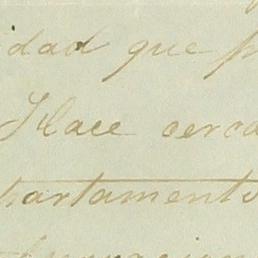 idad que p
Hace cerca
partamento